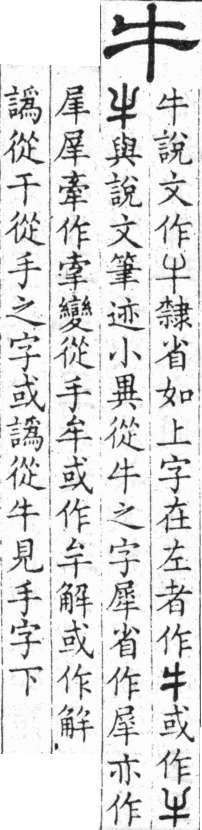 牛
牛說文作隸省如上字在左者作牛或作
與說文筆迹小異從牛之字犀省作犀亦作
牽作變從手牟或作解或作觧
譌從干從手之字或譌從牛見手字下